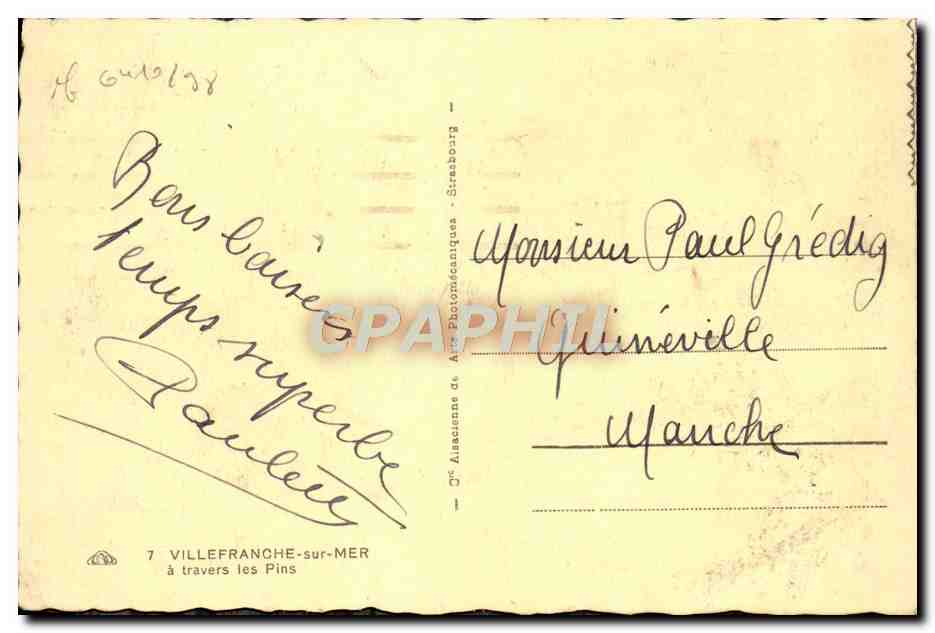 Bons baisers
temps superbe
Paulette
7 VILLEFRANCHE-sur-MER
à travers les Pins
— Cie Alsacienne de Arts Photomécaniques - Strasbourg —
Monsieur Paul Grédig
Quinéville
Manche
CPAPHIL